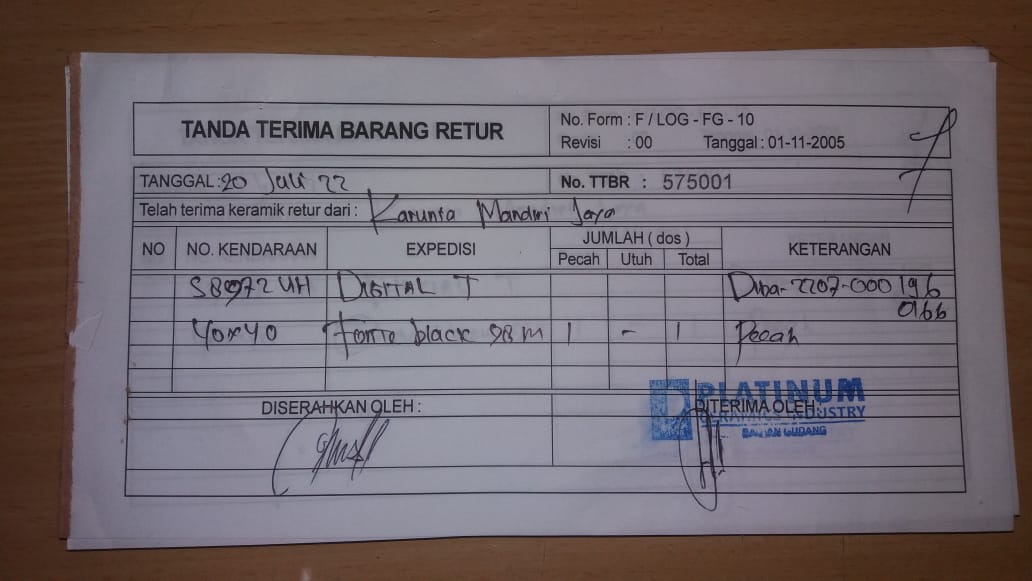 TANDA TERIMA BARANG RETUR
No. Form : F / LOG - FG - 10
Revisi : 00 Tanggal : 01-11-2005
TANGGAL : 20 Juli 22 No. TTBR : 575001
Telah terima keramik retur dari : Karunia Mandiri Jaya
NO NO. KENDARAAN EXPEDISI JUMLAH ( dos ) KETERANGAN
Pecah Utuh Total
S8972UH DIGITAL T -2207-000196
0166
40x40 Forte black 1 - 1 Pecah
DISERAHKAN OLEH : DITERIMA OLEH :
PLATINUM
CERAMICS INDUSTRY
BAGIAN GUDANG